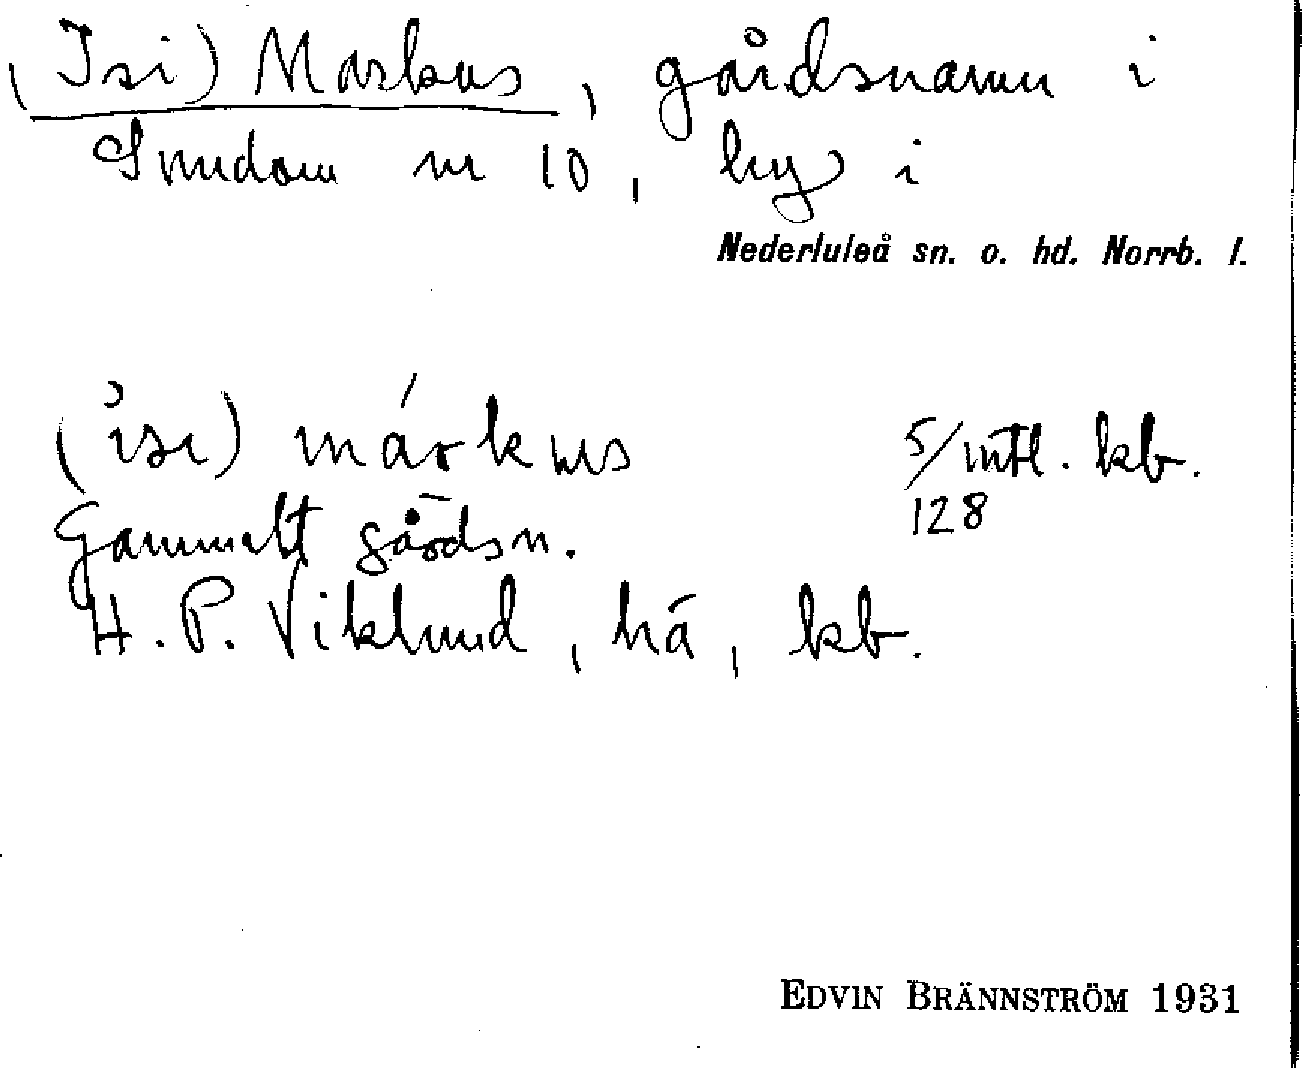 (Isi) Markus, gårdsnamn i
Smedom nr 10, by i
Nederluleå sn. o. hd. Norrb. l.
(isi) márkus 5/128 mtl. kb.
Gammalt gårdsn.
H. P. Viklund, hä, kb.
EDVIN BRÄNNSTRÖM 1931